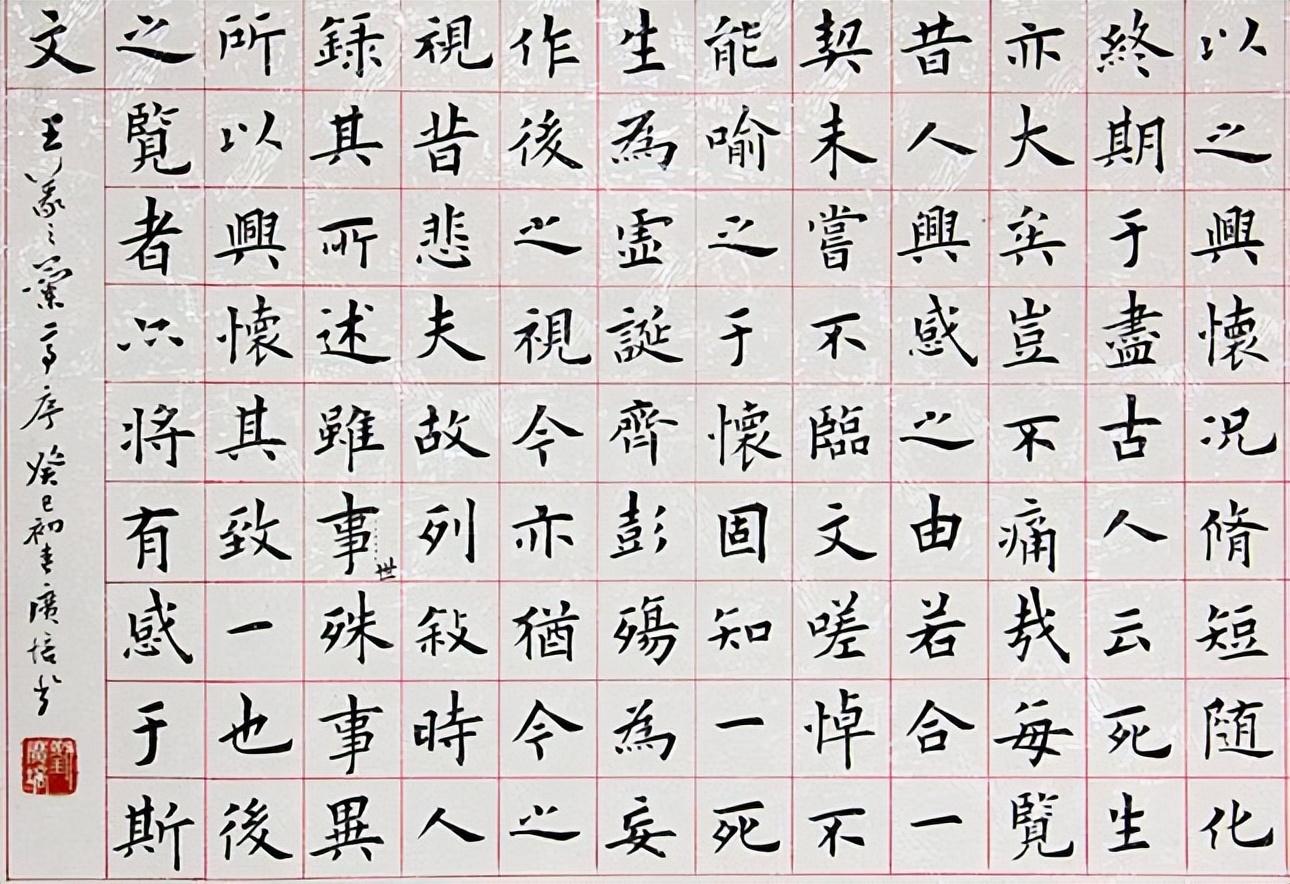 以之興懷况脩短随化
終期于盡古人云死生
亦大矣豈不痛哉每覽
昔人興感之由若合一
契未嘗不臨文嗟悼不
能喻之于懷固知一死
生為虚誕齊彭殤為妄
作後之視今亦猶今之
視昔悲夫故列敍時人
錄其所述雖事殊事異
世
所以興懷其致一也後
之覽者亦将有感于斯
文
王羲之蘭亭序 癸巳初春廣培书
劉廣培